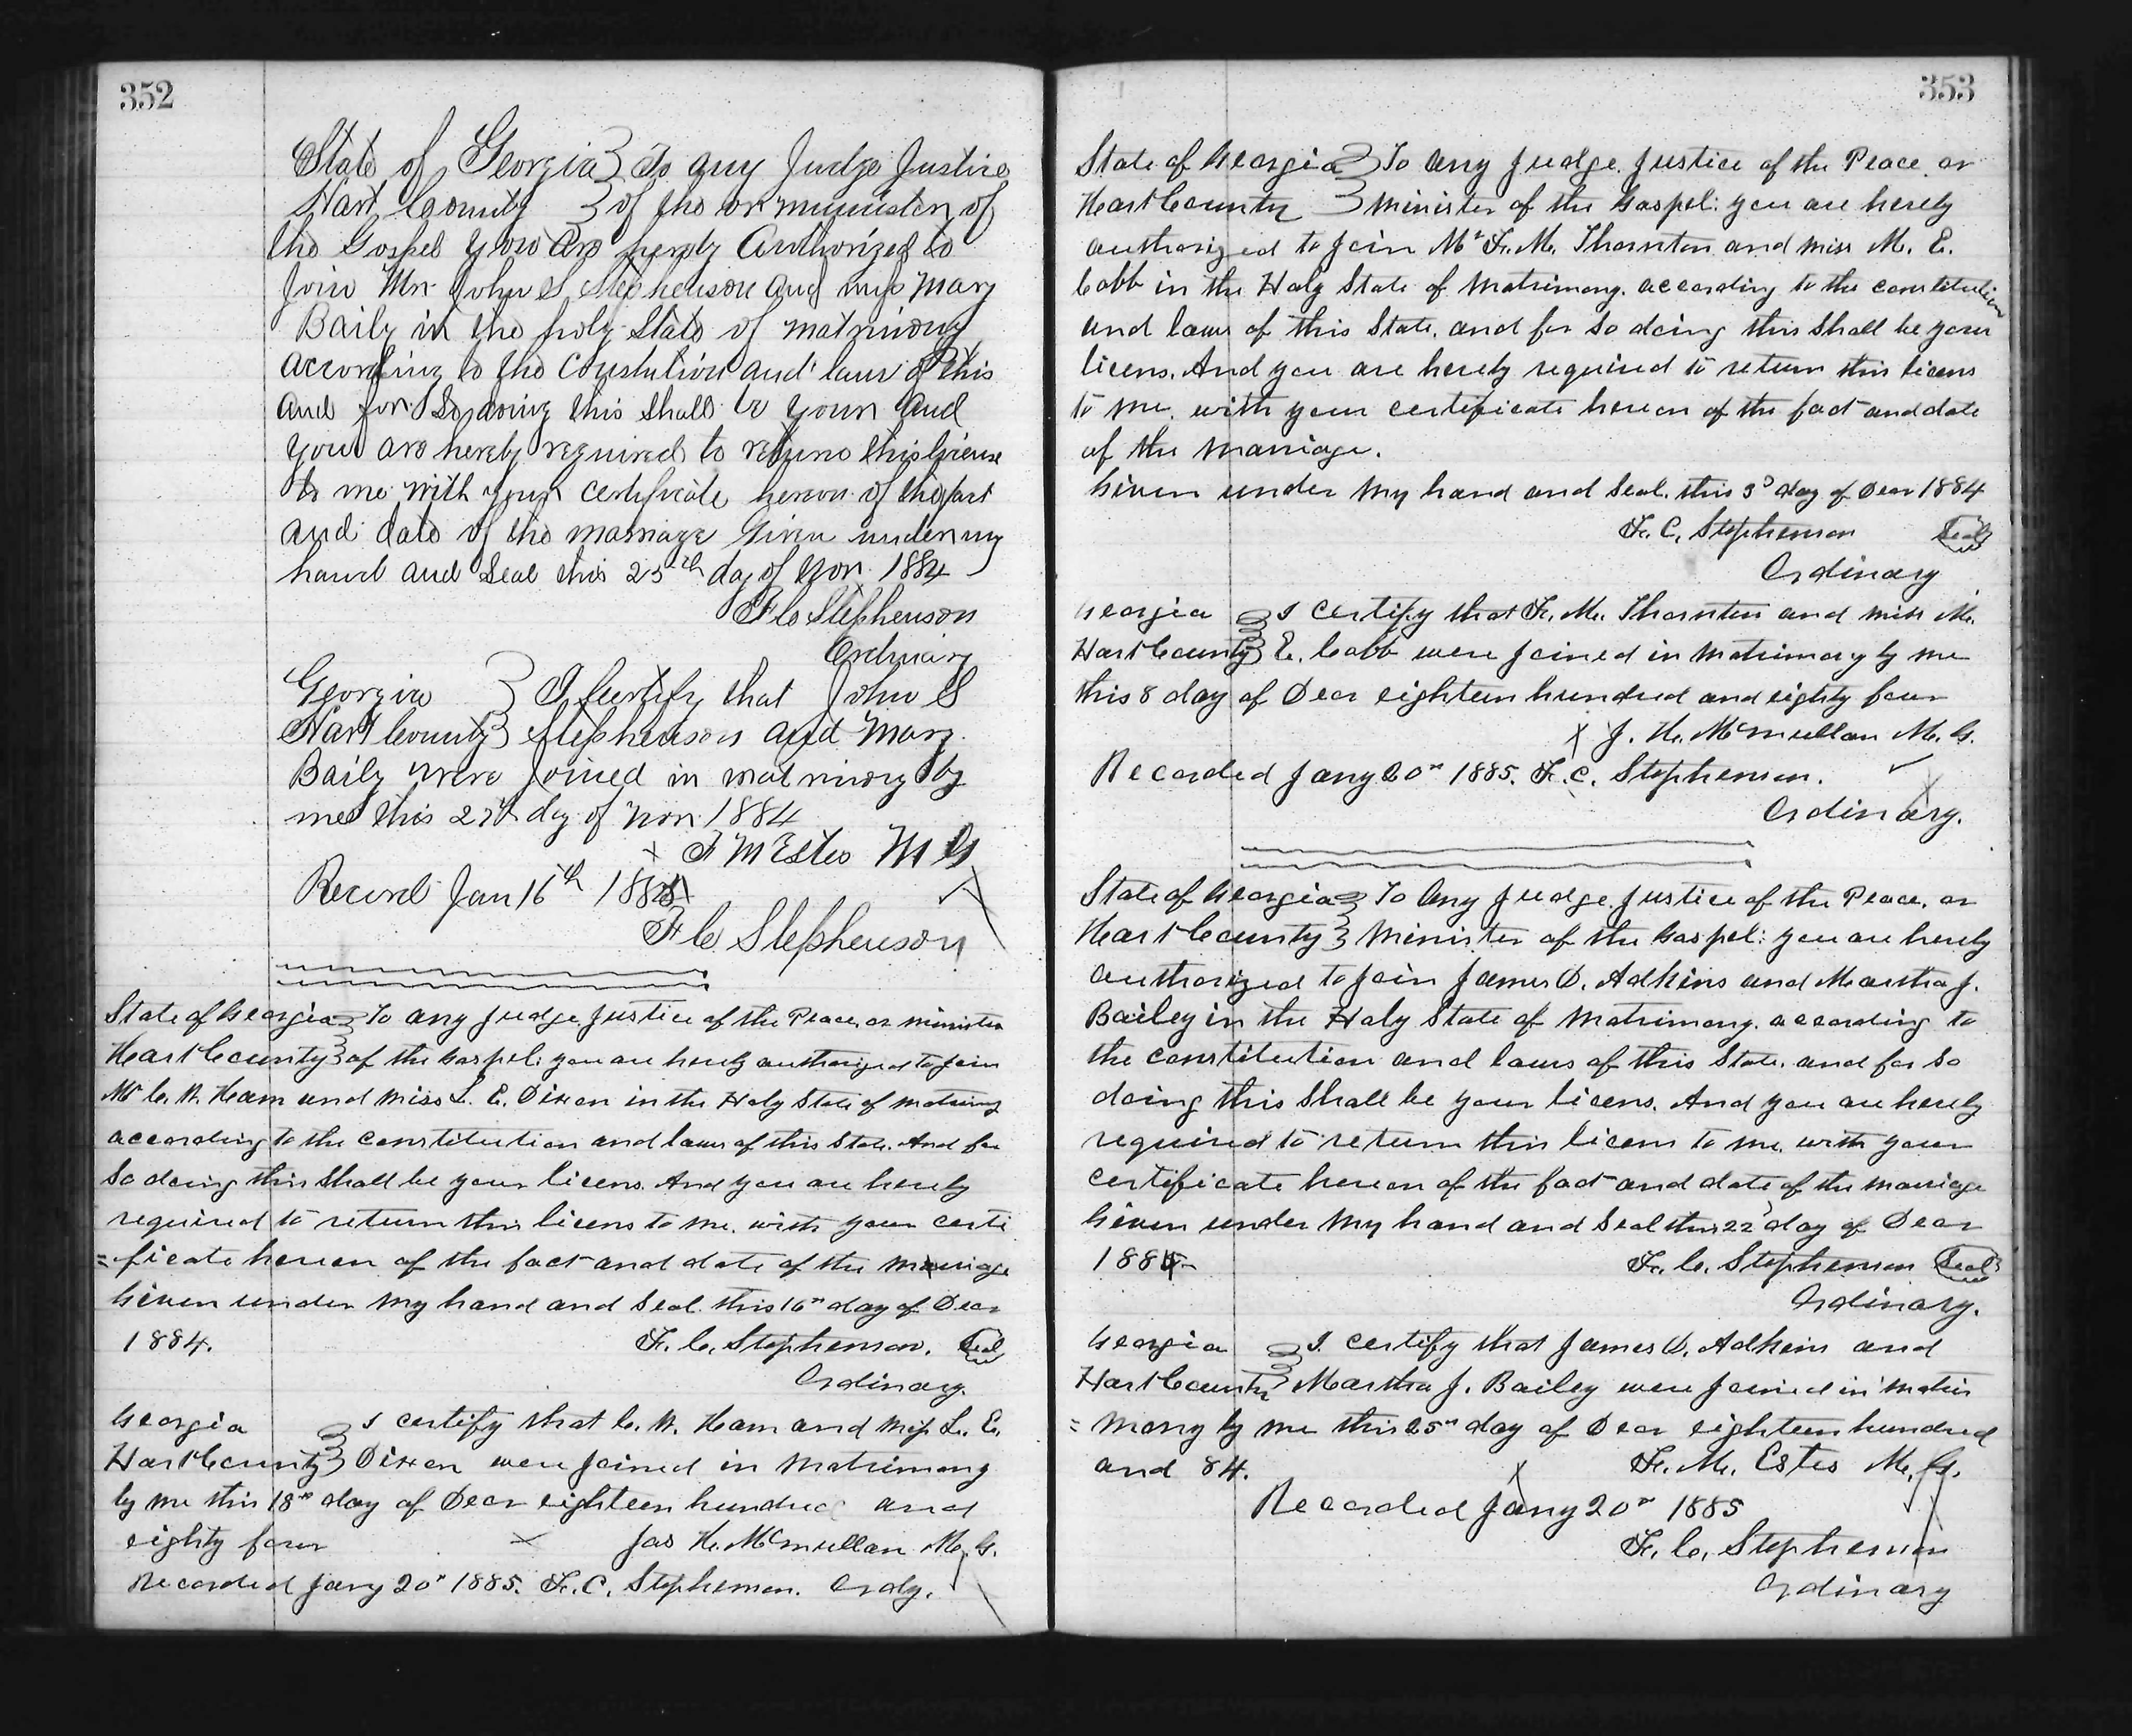 352
State of Georgia } To any Judge Justice
Hart County } of the or minister of
the Gospel you are hereby Authorized to
Join Mr John S Stephenson and miss Mary
Baily in the holy State of matrimony
according to the Constution and laws of this
and for So doing this Shall be your and
you are hereby required to return this license
to me with your certificate hereon of the fact
and date of the marriage Given under my
hand and Seal this 25th day of Nov. 1884
F C Stephenson
Ordinary
Georgia } I Certify that John S
Hart County } Stephenson and Mary
Baily were Joined in matrimony by
me this 27th day of Nov 1884
x F M Estes M G
Record Jan 16th 1885
F C Stephenson
State of Georgia } To any Judge Justice of the Peace, or minister
Hart County } of the Gospel: you are hereby authorized to join
Mr C. H. Ham and miss L. E. Dixon in the Holy State of matrimony
according to the constitution and laws of this State. And for
So doing this Shall be your licens. And you are hereby
required to return this licens to me, with your certi
=ficate hereon of the fact and date of the marriage
Given under my hand and Seal. this 16th day of Decr
1884. F. C. Stephenson. Seal
Ordinary.
Georgia } I certify that C. H. Ham and Miss L. E.
Hart County } Dixon were joined in matrimony
by me this 18th day of Decr eighteen hundred and
eighty four x Jas H. McMullan M. G.
Recorded Jany 20th 1885. F. C. Stephenson. Ordy.
353
State of Georgia } To any Judge. Justice of the Peace, or
Hart County } minister of the Gospel: you are hereby
authorized to join Mr F. M. Thornton and miss M. E.
Cobb in the Holy State of Matrimony. according to the constitution
and laws of this State. and for So doing this Shall be your
licens. And you are hereby required to return this licens
to me, with your certificate hereon of the fact and date
of the marriage.
Given under my hand and Seal. this 3d day of Decr 1884
F. C. Stephenson Seal
Ordinary
Georgia } I certify that F. M. Thornton and miss M.
Hart County } E. Cobb were joined in matrimony by me
this 8 day of Decr eighteen hundred and eighty four
x J. H. McMullan M. G.
Recorded Jany 20th 1885. F. C. Stephenson.
Ordinary.
State of Georgia } To any Judge. Justice of the Peace, or
Hart County } minister of the Gospel: you are hereby
authorized to join James D. Adkins and Martha J.
Bailey in the Holy State of Matrimony. according to
the constitution and laws of this State. and for So
doing this Shall be your licens. And you are hereby
required to return this licens to me, with your
certificate hereon of the fact and date of the marriage
Given under my hand and Seal this 22d day of Decr
1884 F. C. Stephenson Seal
Ordinary.
Georgia } I certify that James D. Adkins and
Hart County } Martha J. Bailey were joined in matri
=mony by me this 25th day of Decr eighteen hundred
and 84. F. M. Estes M. G.
Recorded Jany 20th 1885
F. C. Stephenson
Ordinary